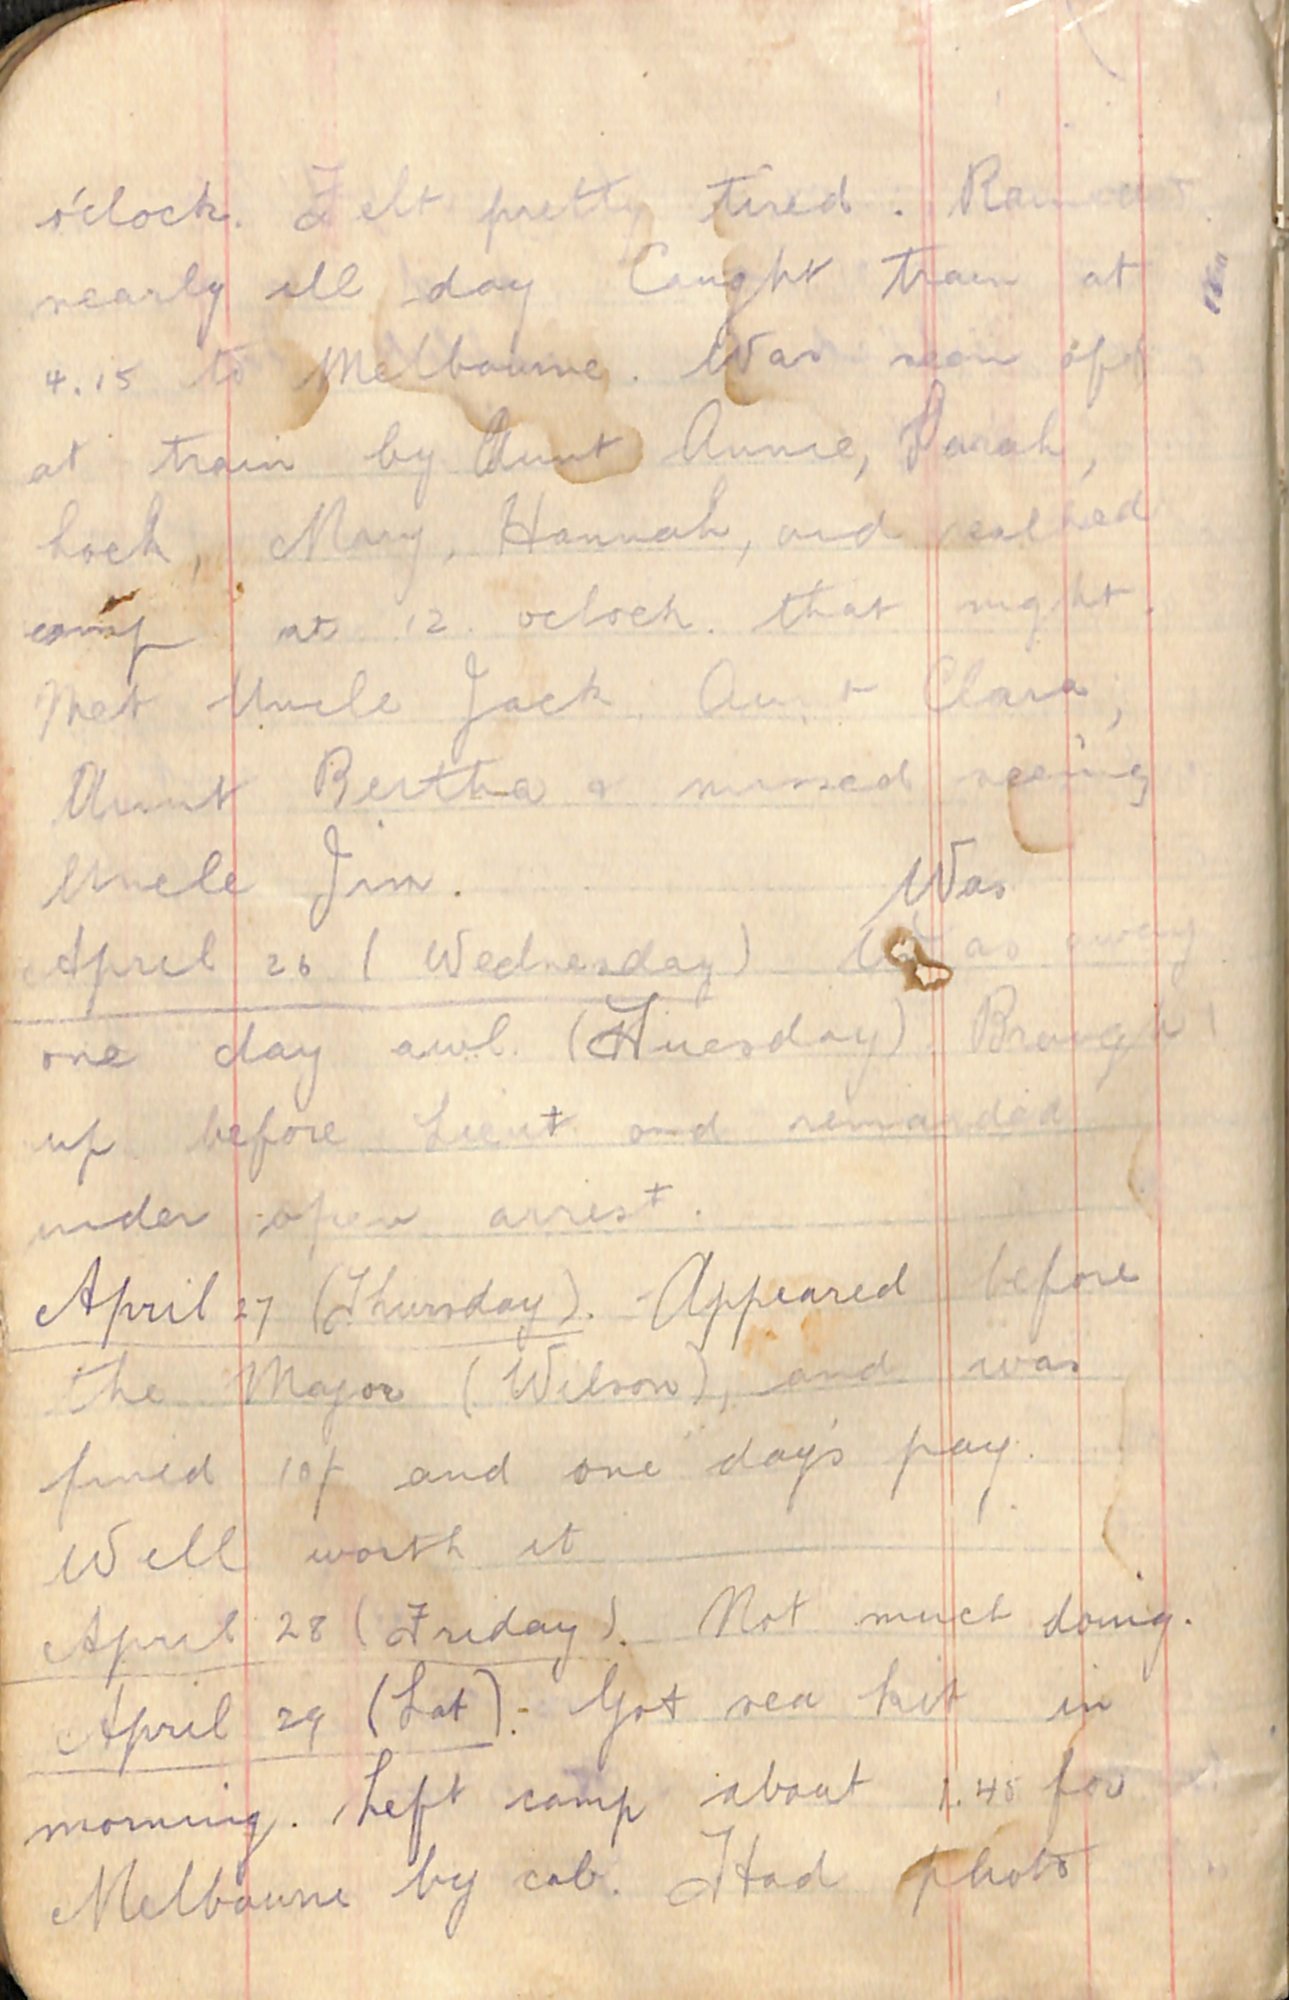 o'clock. Felt pretty tired. Rained
nearly all day Caught train at
4.15 to Melbourne. Was seen off
at train by Aunt Annie, Sarah,
Lock, Mary, Hannah, and reached
camp at 12 oclock. that night.
Met Uncle Jack, Aunt Clara,
Aunt Bertha & missed seeing
Uncle Jim.
Was
April 26 (Wednesday) Was away
one day awl. (Tuesday). Brought
up before Lieut and remanded
under open arrest.
April 27 (Thursday). Appeared before
the Major (Wilson), and was
fined 10/ and one day's pay.
Well worth it
April 28 (Friday). Not much doing.
April 29 (Sat). Got sea kit in
morning. Left camp about 1.45 for
Melbourne by cab. Had photo